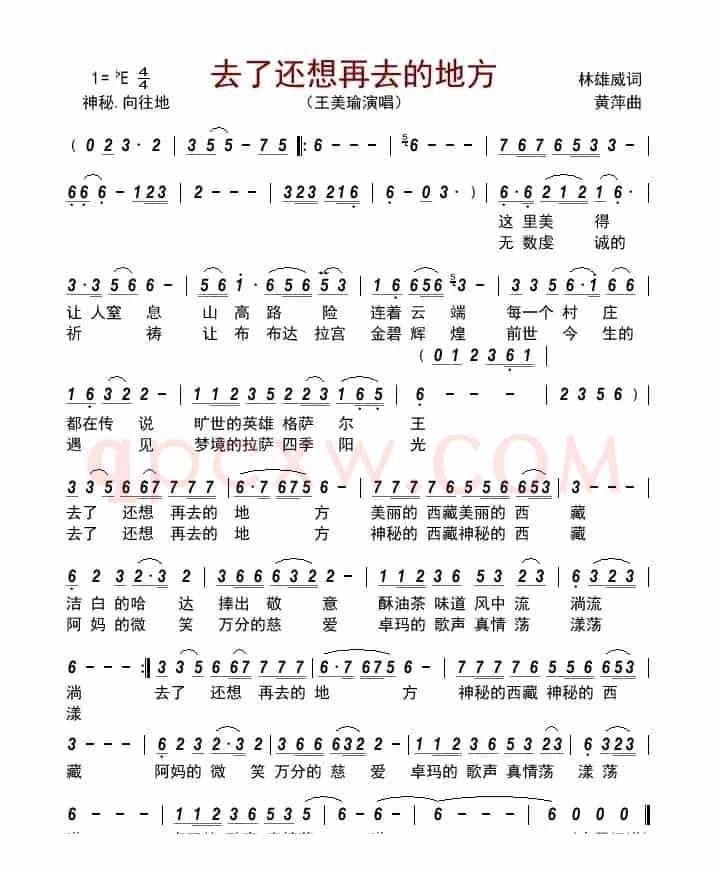 去了还想再去的地方
1=♭E 4/4
林雄威词
神秘.向往地
（王美瑜演唱）
黄萍曲
( 0 2 3 · 2 | 3 5 5 - 7 5 ‖: 6 - - - | 5 6 - - - | 7 6 7 6 5 3 3 - |
6 6 6 - 1 2 3 | 2 - - - | 3 2 3 2 1 6 | 6 - 0 3 · ) | 6 · 6 2 1 2 1 6 · |
这 里 美 得
无 数 虔 诚的
3 · 3 5 6 6 - | 5 6 1 · 6 5 6 5 3 | 1 6 6 5 6 5 3 - | 3 3 5 6 · 1 6 6 |
让 人窒 息 山 高 路 险 连着 云 端 每一个 村 庄
祈 祷 让 布 布达 拉宫 金碧 辉 煌 前世 今 生的
( 0 1 2 3 6 1 |
1 6 3 2 2 - | 1 1 2 3 5 2 2 3 1 6 5 | 6 - - - | 2 3 5 6 ) |
都在传 说 旷世的英雄 格萨 尔 王
遇 见 梦境的拉萨 四季 阳 光
qpcxw.COM
3 3 5 6 6 7 7 7 7 | 6 · 7 6 7 5 6 - | 7 7 7 7 6 5 5 6 6 5 3 |
去了 还想 再去的 地 方 美丽的 西藏美丽的 西 藏
去了 还想 再去的 地 方 神秘的 西藏神秘的 西 藏
6 2 3 2 · 3 2 - | 3 6 6 6 3 2 2 - | 1 1 2 3 6 5 3 2 3 | 6 3 2 3 |
洁白 的哈 达 捧出 敬 意 酥油茶 味道 风中 流 淌流
阿妈 的微 笑 万分的慈 爱 卓玛的 歌声 真情 荡 漾荡
6 - - :‖ 3 3 5 6 6 7 7 7 7 | 6 · 7 6 7 5 6 - | 7 7 7 7 6 5 5 6 6 5 3 |
淌 去了 还想 再去的 地 方 神秘的西藏 神秘的 西
漾
3 - - - | 6 2 3 2 · 3 2 - | 3 6 6 6 6 3 2 2 - | 1 1 2 3 6 5 3 2 | 6 3 2 3 |
藏 阿妈的 微 笑 万分的 慈 爱 卓玛的 歌声 真情荡 漾荡
6 - - - | 1 1 2 3 6 5 3 5 | 6 - 6 - | 6 - - - | 6 0 0 0 ‖